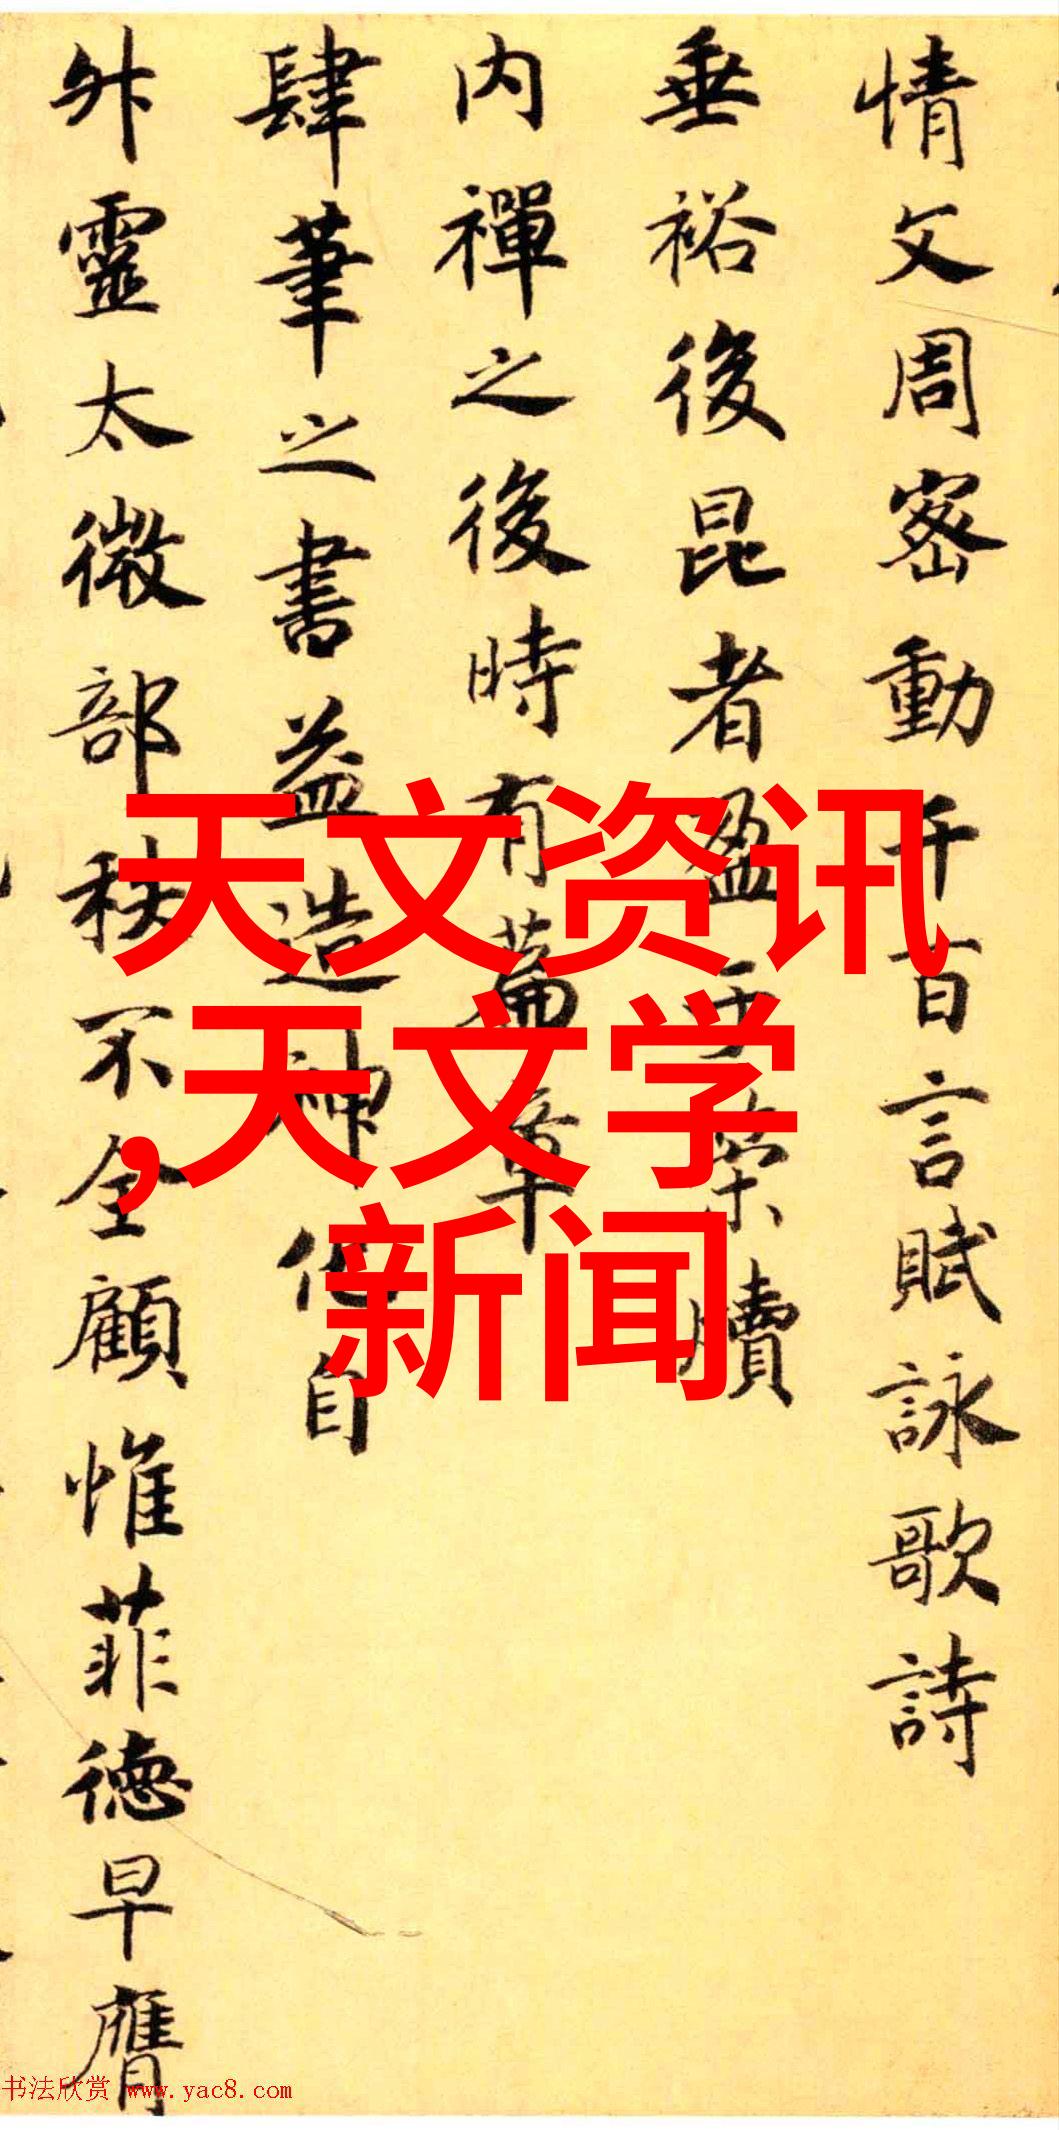 情文周密動千百言賦詠歌詩
垂裕後昆者盈于宗牘
内禪之後時有篇章
肆筆之書益造神化自
外靈太微部秩不全顧惟菲德早膺
天文资讯
,天文学
新闻
书法欣赏 www.yac8.com